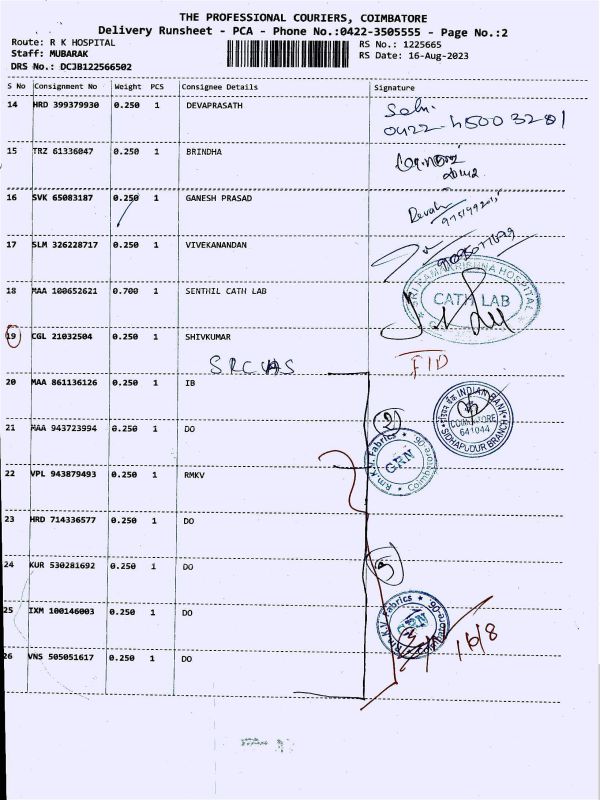 THE PROFESSIONAL COURIERS, COIMBATORE
Delivery Runsheet - PCA - Phone No.:0422-3505555 - Page No.:2
Route: R K HOSPITAL
RS No.: 1225665
Staff: MUBARAK
RS Date: 16-Aug-2023
DRS No.: DCJB122566502
S No Consignment No Weight PCS Consignee Details Signature
14 HRD 399379930 0.250 1 DEVAPRASATH
0422-4500 3201
15 TRZ 61336047 0.250 1 BRINDHA
16 SVK 65083187 0.250 1 GANESH PRASAD
17 SLM 326228717 0.250 1 VIVEKANANDAN
18 MAA 100652621 0.700 1 SENTHIL CATH LAB
SRI RAMAKRISHNA HOSPITAL
CATH LAB
19 CGL 21032504 0.250 1 SHIVKUMAR
FID
20 MAA 861136126 0.250 1 IB
INDIAN BANK
COIMBATORE
641044
SIDHAPUDUR BRANCH
21 MAA 943723994 0.250 1 DO
22 VPL 943879493 0.250 1 RMKV
Rm.K.V. Fabrics
GRN
Coimbatore-06.
23 HRD 714336577 0.250 1 DO
24 KUR 530281692 0.250 1 DO
25 IXM 100146003 0.250 1 DO
Rm.K.V. Fabrics
GRN
Coimbatore-06.
16/8
26 VNS 505051617 0.250 1 DO